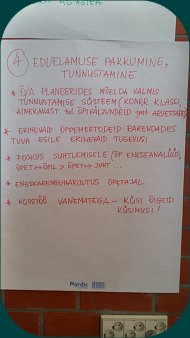 4 EDUELAMUSE PAKKUMINE,
TUNNUSTAMINE
* Õ/A PLANEERIDES MÕELDA VALMIS
TUNNUSTAMISE SÜSTEEM (KONKR. KLASSI,
AINEKAVAST ÕPIVÄLJUNDEID jmt ARVESTADES)
* ERINEVAID ÕPPEMEETODEID RAKENDADES
TUUA ESILE ERINEVAID TUGEVUSI
* FOOKUS SUHTLEMISELE / ÕP ENESEANALÜÜS,
ÕPET ↔ ÕPIL > ÕPET ↔ JUHT ...
* ENESEARENGUHARJUTUS ÕPETAJAL
* KOOSTÖÖ VANEMATEGA – KÜSI ÕIGEID
KÜSIMUSI!
Nordic